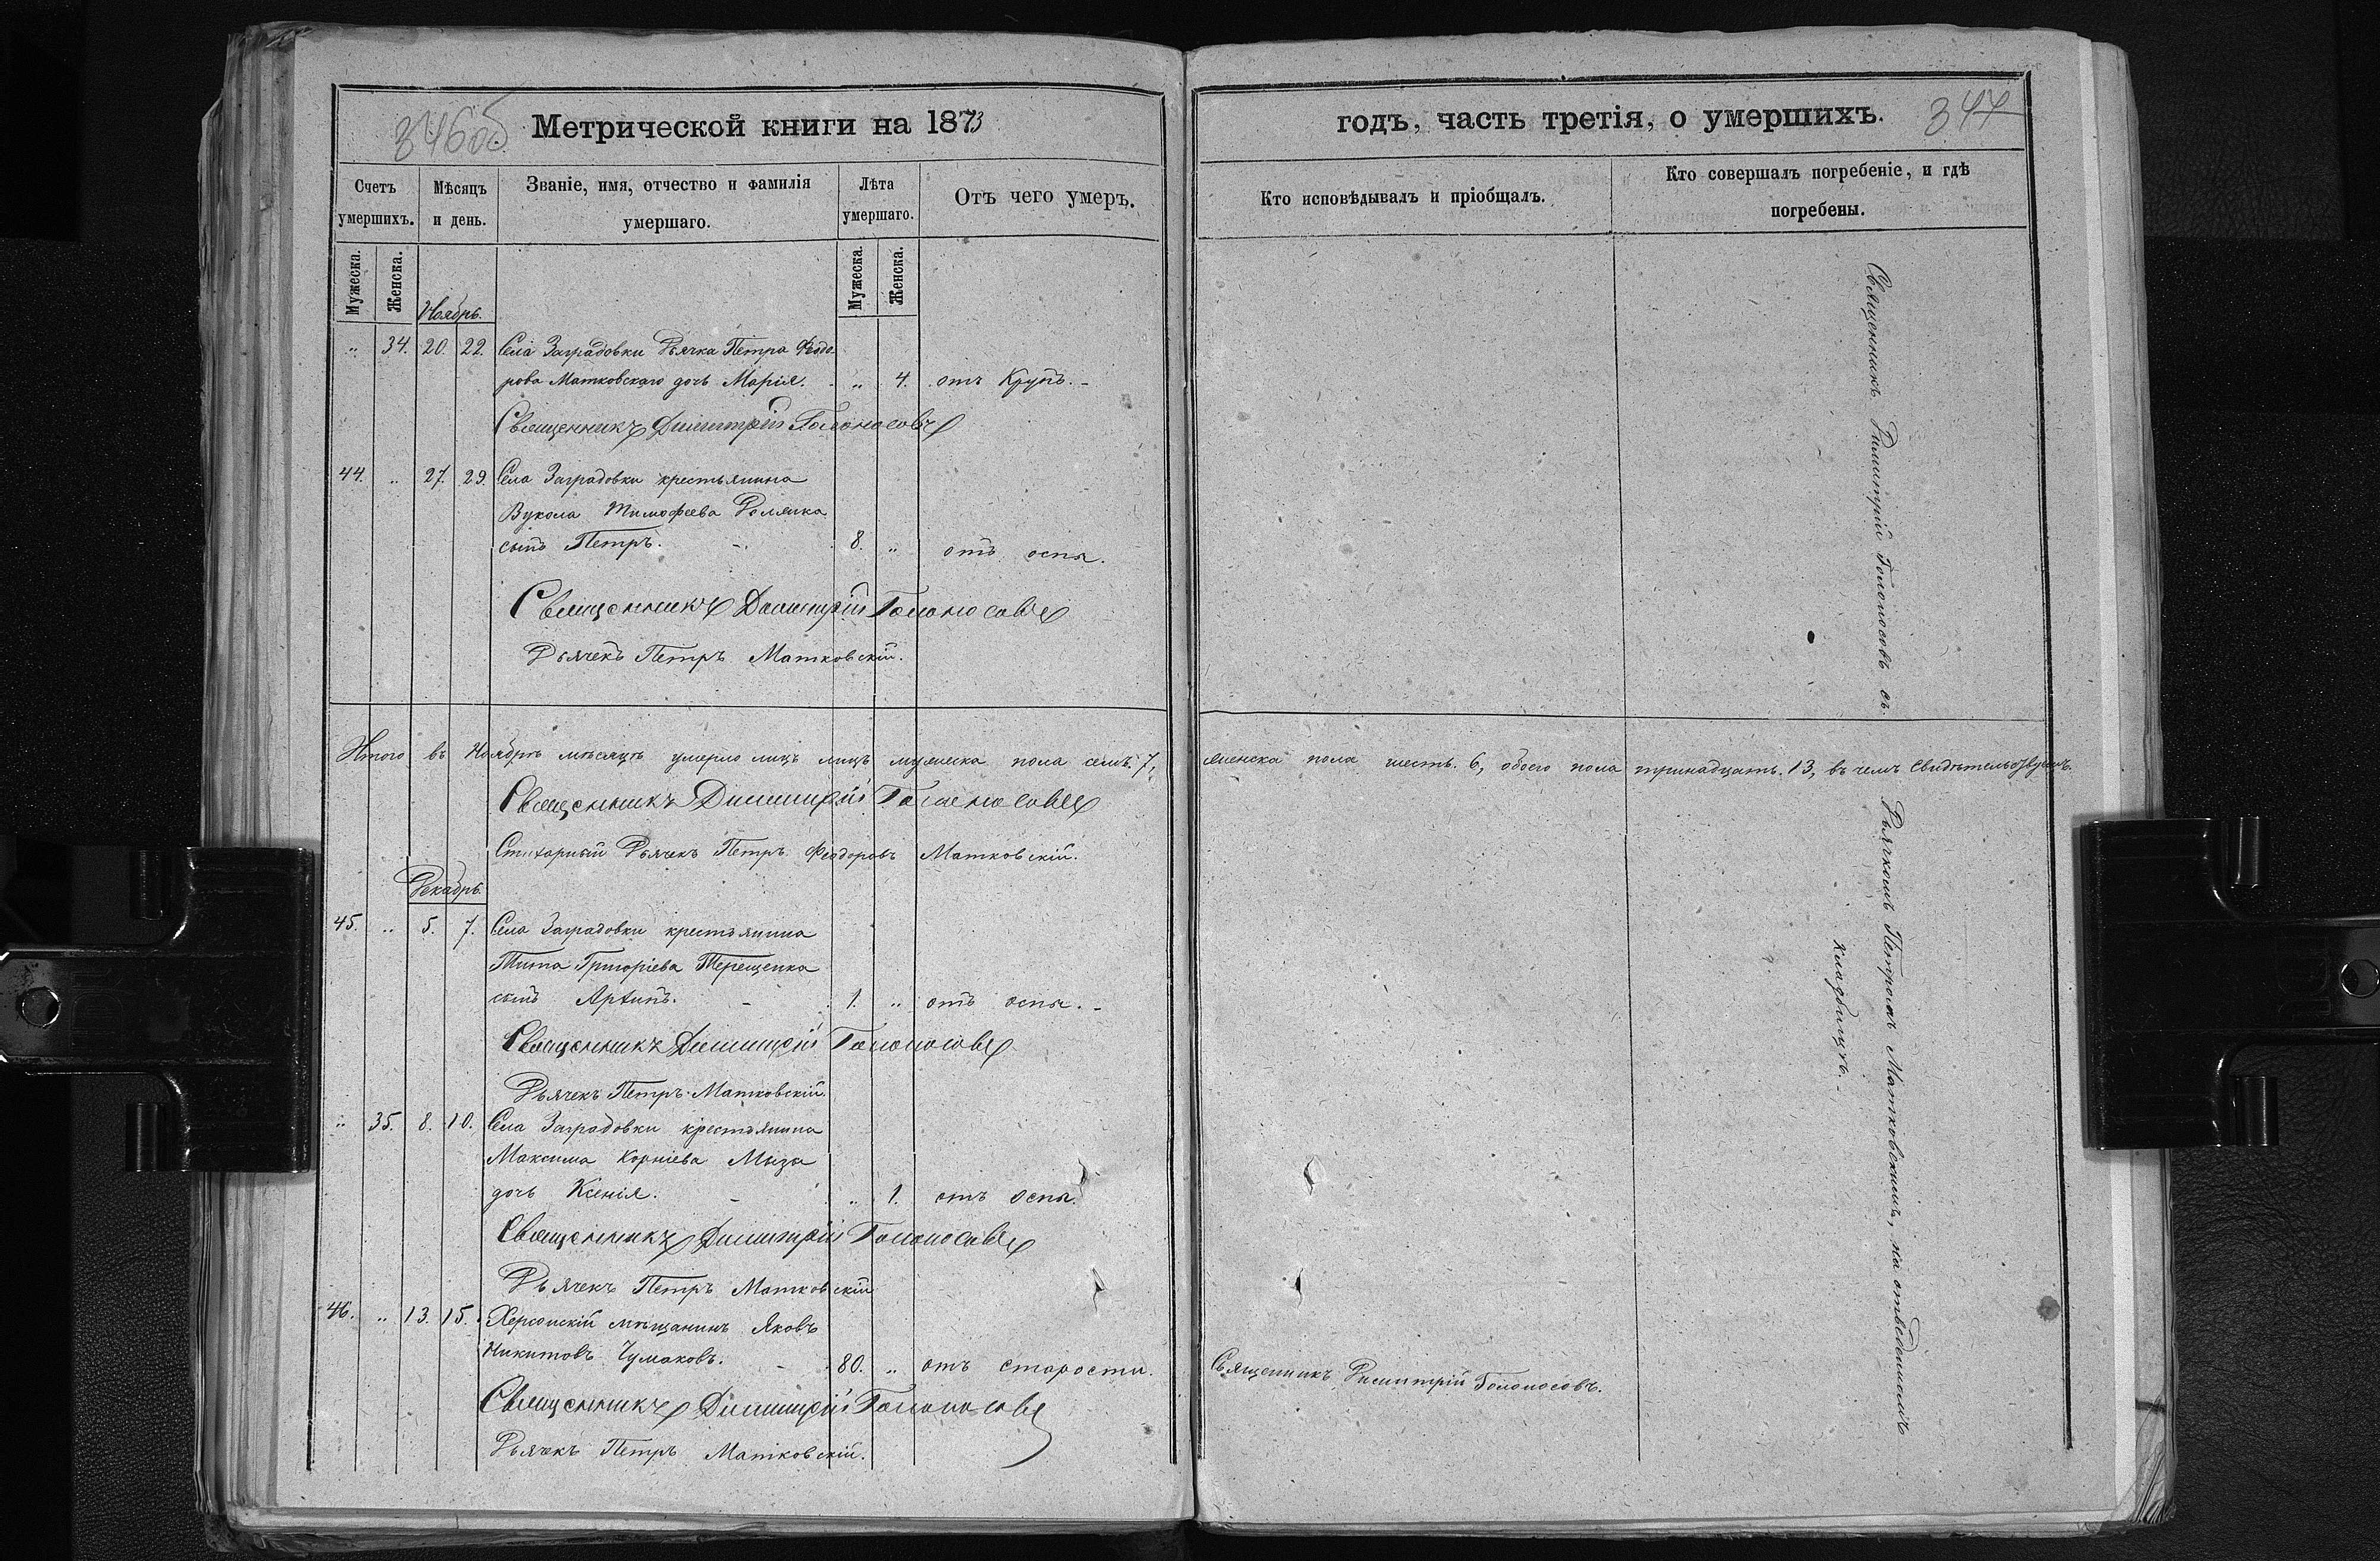 346об
Метрической книги на 1873
Счетъ умершихъ.
Мѣсяцъ и день.
Званіе, имя, отчество и фамилія умершаго.
Лѣта умершаго.
Отъ чего умеръ.
Мужеска.
Женска.
Мужеска.
Женска.
Ноябрь.
„ 34. 20. 22. Села Заградовки Дьячка Петра Ѳеодо-
рова Матковскаго дочь Марія. „ 4. отъ Крупъ.-
Священникъ Димитрій Голоносовъ
44. „ 27. 29. Села Заградовки крестьянина
Вукола Тимофеева Домянка
сынъ Петръ. - 8. „ отъ оспы.
Священникъ Димитрій Голоносовъ
Дьячекъ Петръ Матковскій.
Итого въ Ноябрѣ мѣсяцѣ умерло лицъ лицъ мужеска пола семь. 7,
Священникъ Димитрій Голоносовъ
Стихарный Дьячекъ Петръ Ѳеодоровъ Матковскій.
Декабрь.
45. „ 5. 7. Села Заградовки крестьянина
Тита Григоріева Терещенка
сынъ Архипъ. - 1. „ отъ оспы.-
Священникъ Димитрій Голоносовъ
Дьячекъ Петръ Матковскій.
„ 35. 8. 10. Села Заградовки крестьянина
Максима Корніева Мыза
дочь Ксенія. - „ 1. отъ оспы.
Священникъ Димитрій Голоносовъ
Дьячекъ Петръ Матковскій
46. „ 13. 15. Херсонскій мѣщанинъ Яковъ
Никитовъ Чумаковъ. - 80. „ отъ старости.
Священникъ Димитрій Голоносовъ
Дьячекъ Петръ Матковскій.
годъ, часть третія, о умершихъ.
347
Кто исповѣдывалъ и пріобщалъ.
Кто совершалъ погребеніе, и гдѣ погребены.
Священникъ Димитрій Голоносовъ съ
женска пола шесть. 6, обоего пола тринадцать. 13, въ чемъ свидѣтельствуемъ.
Дьячкомъ Петромъ Матковскимъ, на отведенномъ
кладбищѣ.-
Священникъ Димитрій Голоносовъ.